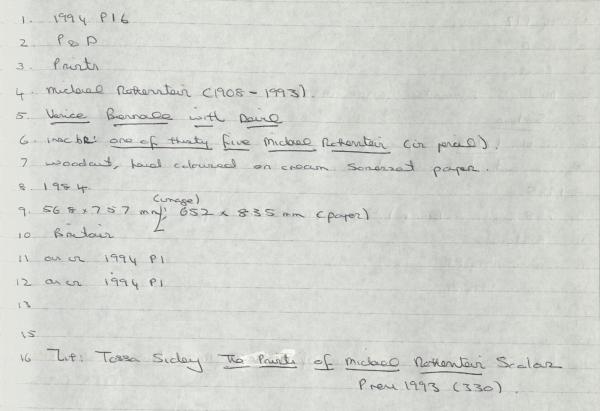 1. 1994 P16
2 P&D
3. Prints
4. Michael Rothenstein (1908-1993).
5. Venice Biennale with David
6. inscbr: one of thirty five Michael Rothenstein (in pencil).
7 woodcut, hand coloured on cream Somerset paper.
8. 1984
(image)
9. 568 x 757 mm; 652 x 835 mm (paper)
10 Britain
11 as in 1994 P1
12 as in 1994 P1
13
15
16 Lit: Tessa Sidey The Prints of Michael Rothenstein Scolar
Press 1993 (330).